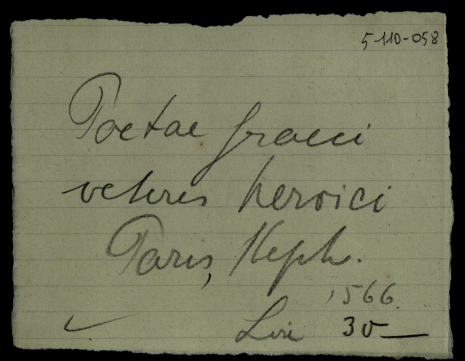 5-110-058
Poetae graeci
veteres heroici
Paris, Steph.
1566.
Lei 30—